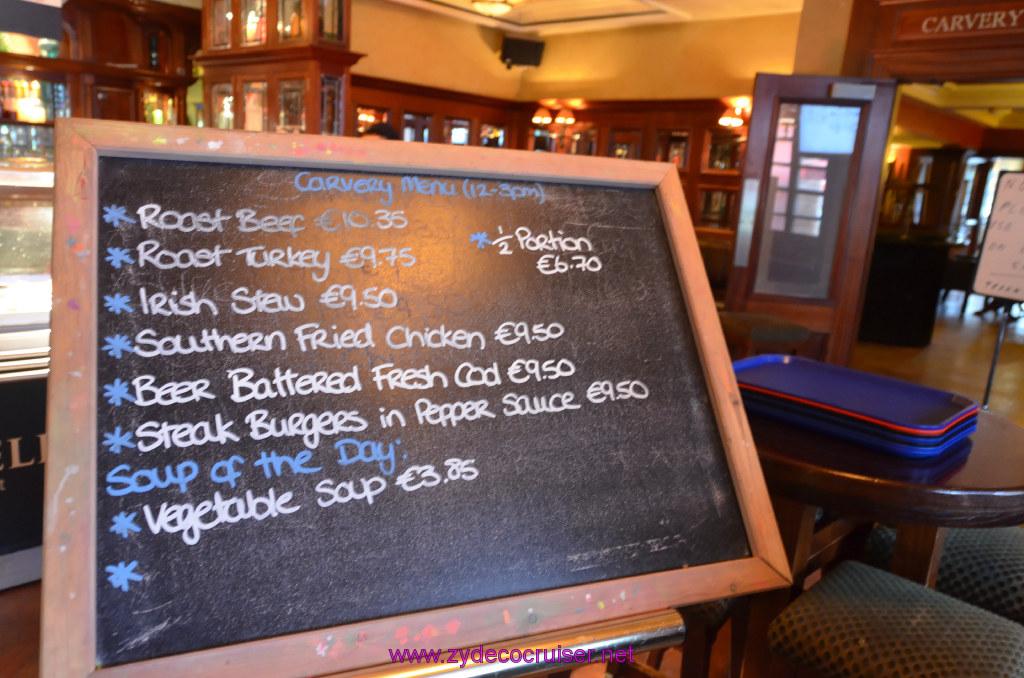 CARVERY
Carvery Menu (12-3pm)
* Roast Beef €10.35
* Roast Turkey €9.75
* ½ Portion
€6.70
* Irish Stew €9.50
* Southern Fried Chicken €9.50
* Beer Battered Fresh Cod €9.50
* Steak Burgers in Pepper Sauce €9.50
Soup of the Day:
* Vegetable Soup €3.85
*
www.zydecocruiser.net